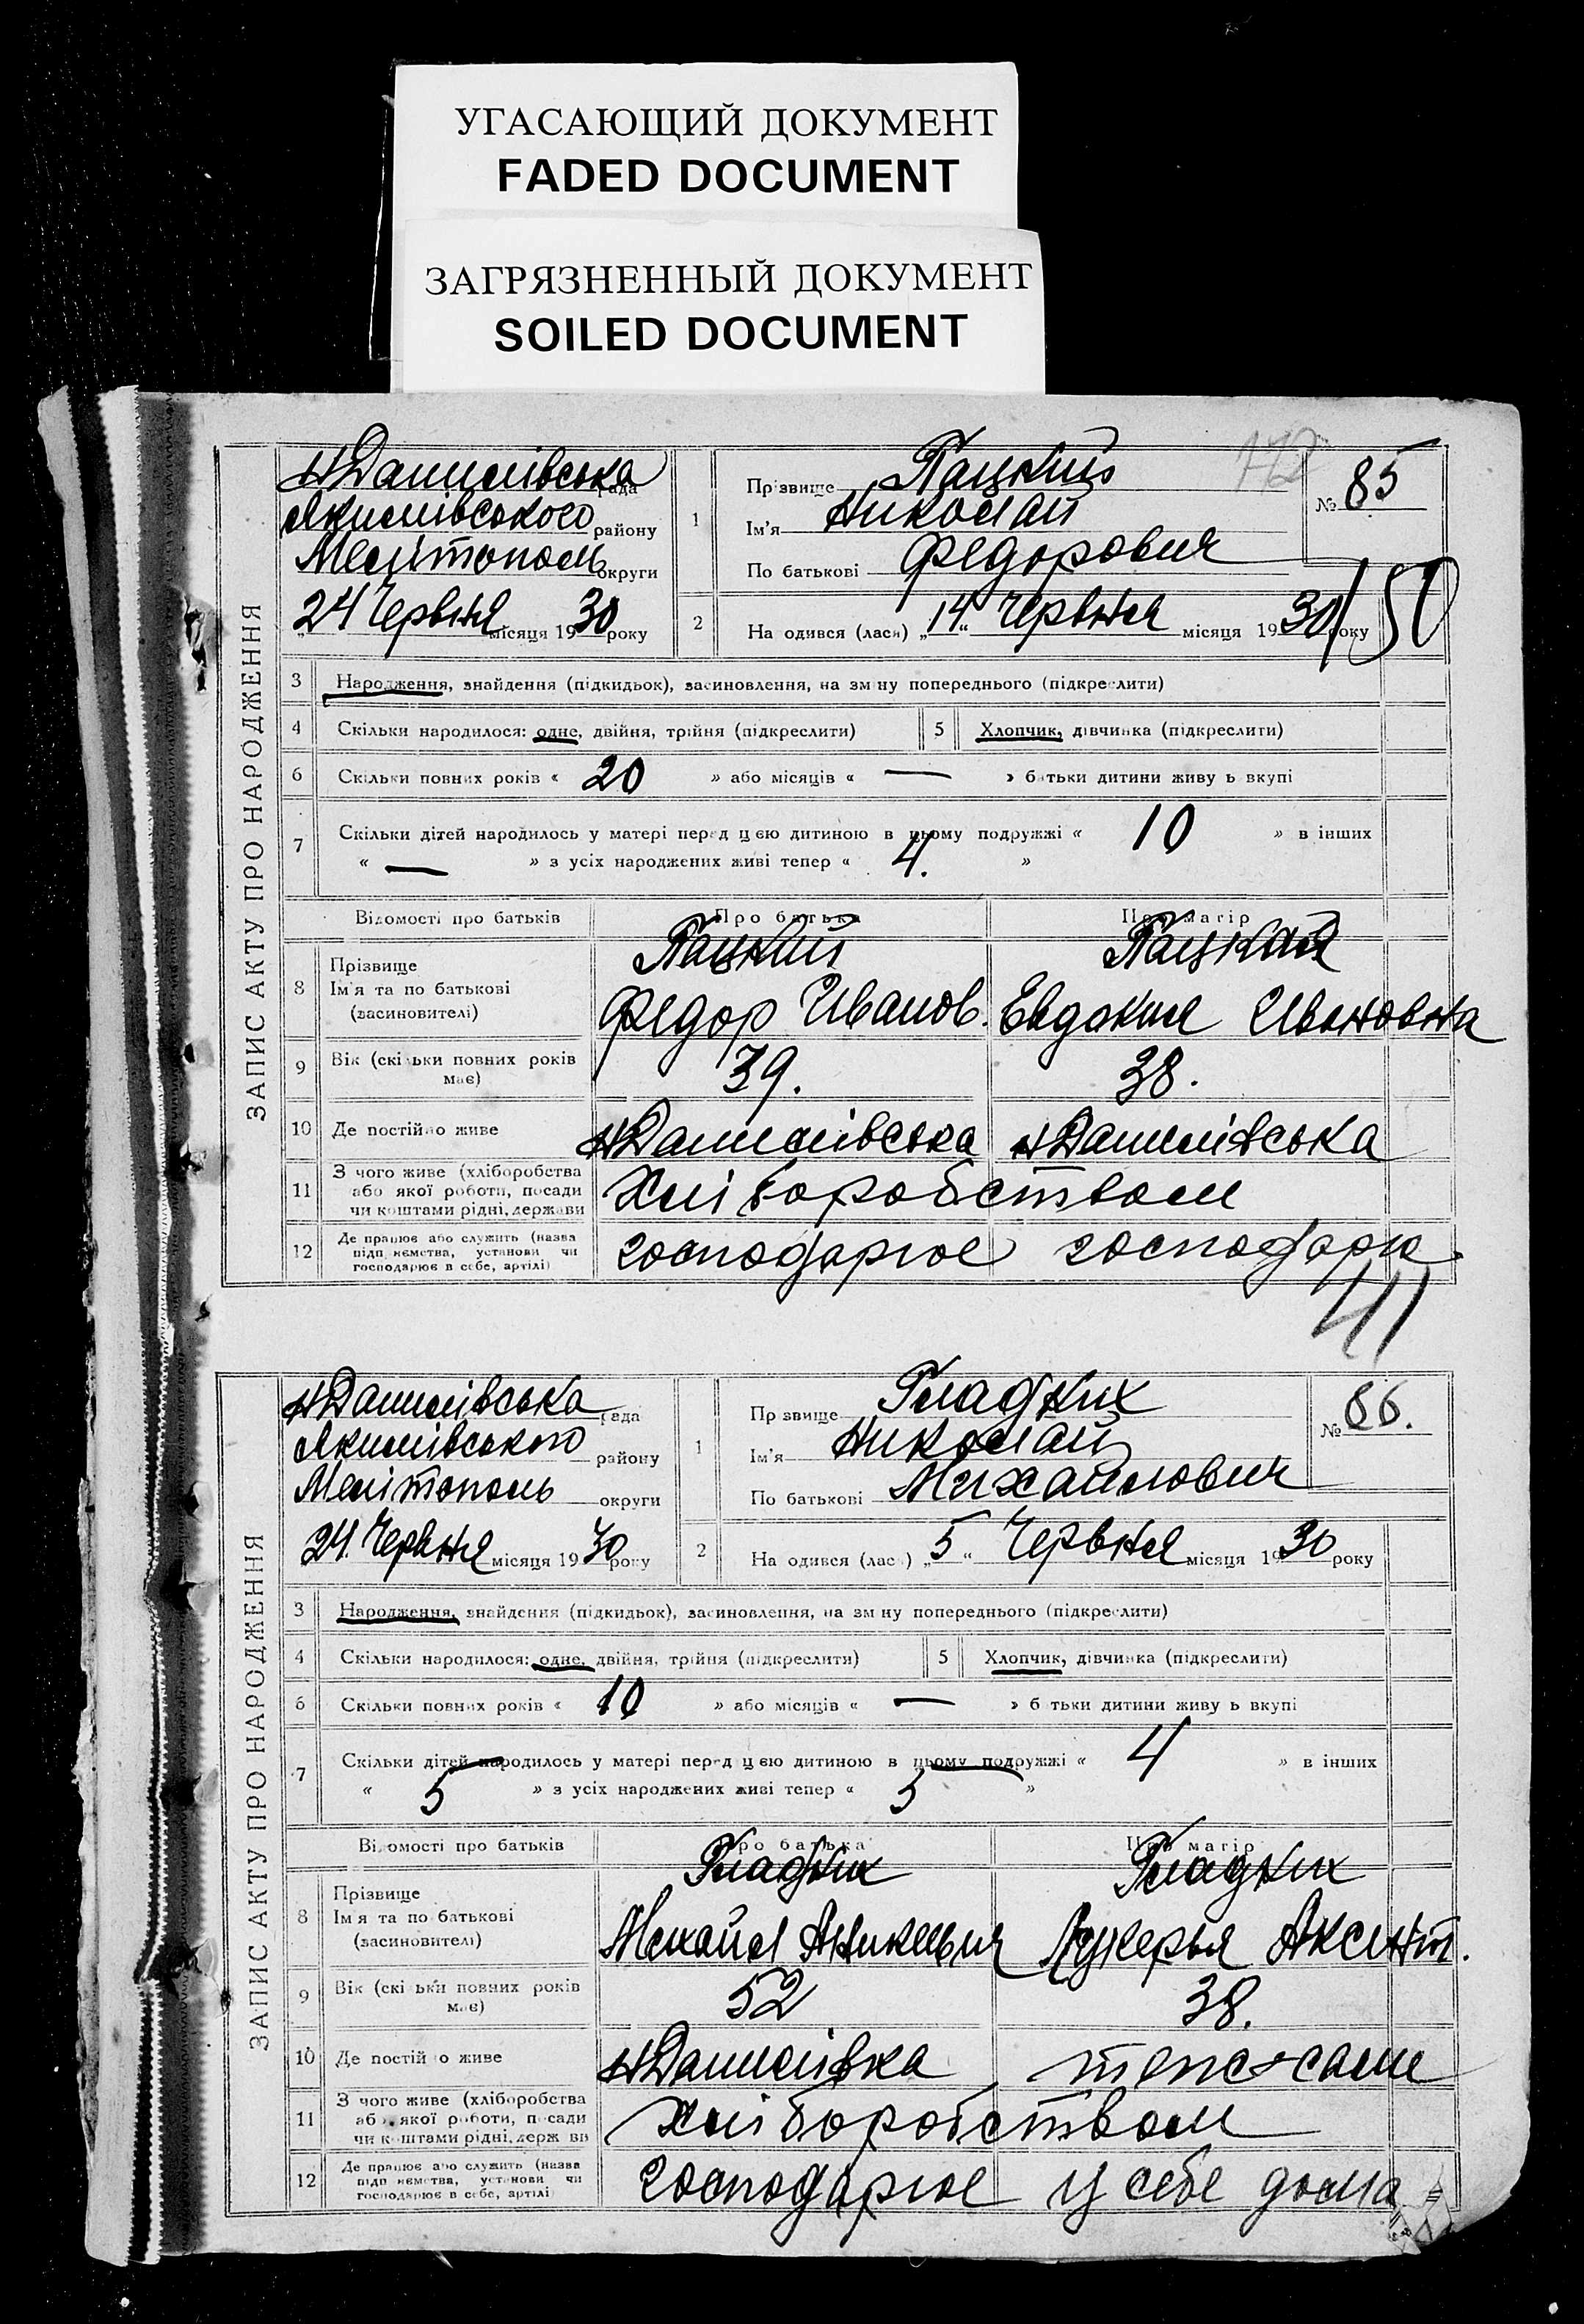 УГАСАЮЩИЙ ДОКУМЕНТ
FADED DOCUMENT
ЗАГРЯЗНЕННЫЙ ДОКУМЕНТ
SOILED DOCUMENT
ЗАПИС АКТУ ПРО НАРОДЖЕННЯ
НДанилівська рада
Якимівського району
Мелітополь округи
24 Червня місяця 1930 року
1 Прізвище Пацкий
Ім'я Николай
По батькові Федорович
№ 85
172
2 На одився (лася) „14“ Червня місяця 1930 року
150
3 Народження, знайдення (підкидьок), засиновлення, на зміну попереднього (підкреслити)
4 Скільки народилося: одне, двійня, трійня (підкреслити) 5 Хлопчик, дівчинка (підкреслити)
6 Скільки повних років « 20 » або місяців « — » батьки дитини живу ь вкупі
7 Скільки дітей народилось у матері перед цією дитиною в цьому подружжі « 10 » в інших
« — » з усіх народжених живі тепер « 4. »
Відомості про батьків Про батька Про матір
8 Прізвище Пацкий Пацкая
Ім'я та по батькові (засиновителі) Федор Иванов. Евдокия Ивановна
9 Вік (скільки повних років має) 39. 38.
10 Де постійно живе НДанилівська НДанилівська
11 З чого живе (хліборобства
або якої роботи, посади
чи коштами рідні, держави Хліборобством
12 Де працює або служить (назва
підприємства, установи чи
господарює в себе, артілі) господарює господарю
41
ЗАПИС АКТУ ПРО НАРОДЖЕННЯ
НДанилівська рада
Якимівського району
Мелітополь округи
24. Червня місяця 1930 року
1 Прізвище Гладких
Ім'я Николай
По батькові Михайлович
№ 86.
2 На одився (лась) „5“ Червня місяця 1930 року
3 Народження, знайдення (підкидьок), засиновлення, на зміну попереднього (підкреслити)
4 Скільки народилося: одне, двійня, трійня (підкреслити) 5 Хлопчик, дівчинка (підкреслити)
6 Скільки повних років « 10 » або місяців « — » батьки дитини живу ь вкупі
7 Скільки дітей народилось у матері перед цією дитиною в цьому подружжі « 4 » в інших
« 5 » з усіх народжених живі тепер « 5 »
Відомості про батьків Про батька Про матір
8 Прізвище Гладких Гладких
Ім'я та по батькові (засиновителі) Михайл Аникевич Лукерья Аксинт.
9 Вік (скільки повних років має) 52 38.
10 Де постійно живе НДанилівка
11 З чого живе (хліборобства
або якої роботи, посади
чи коштами рідні, держави Хліборобством
12 Де працює або служить (назва
підприємства, установи чи
господарює в себе, артілі) господарює у себе дома